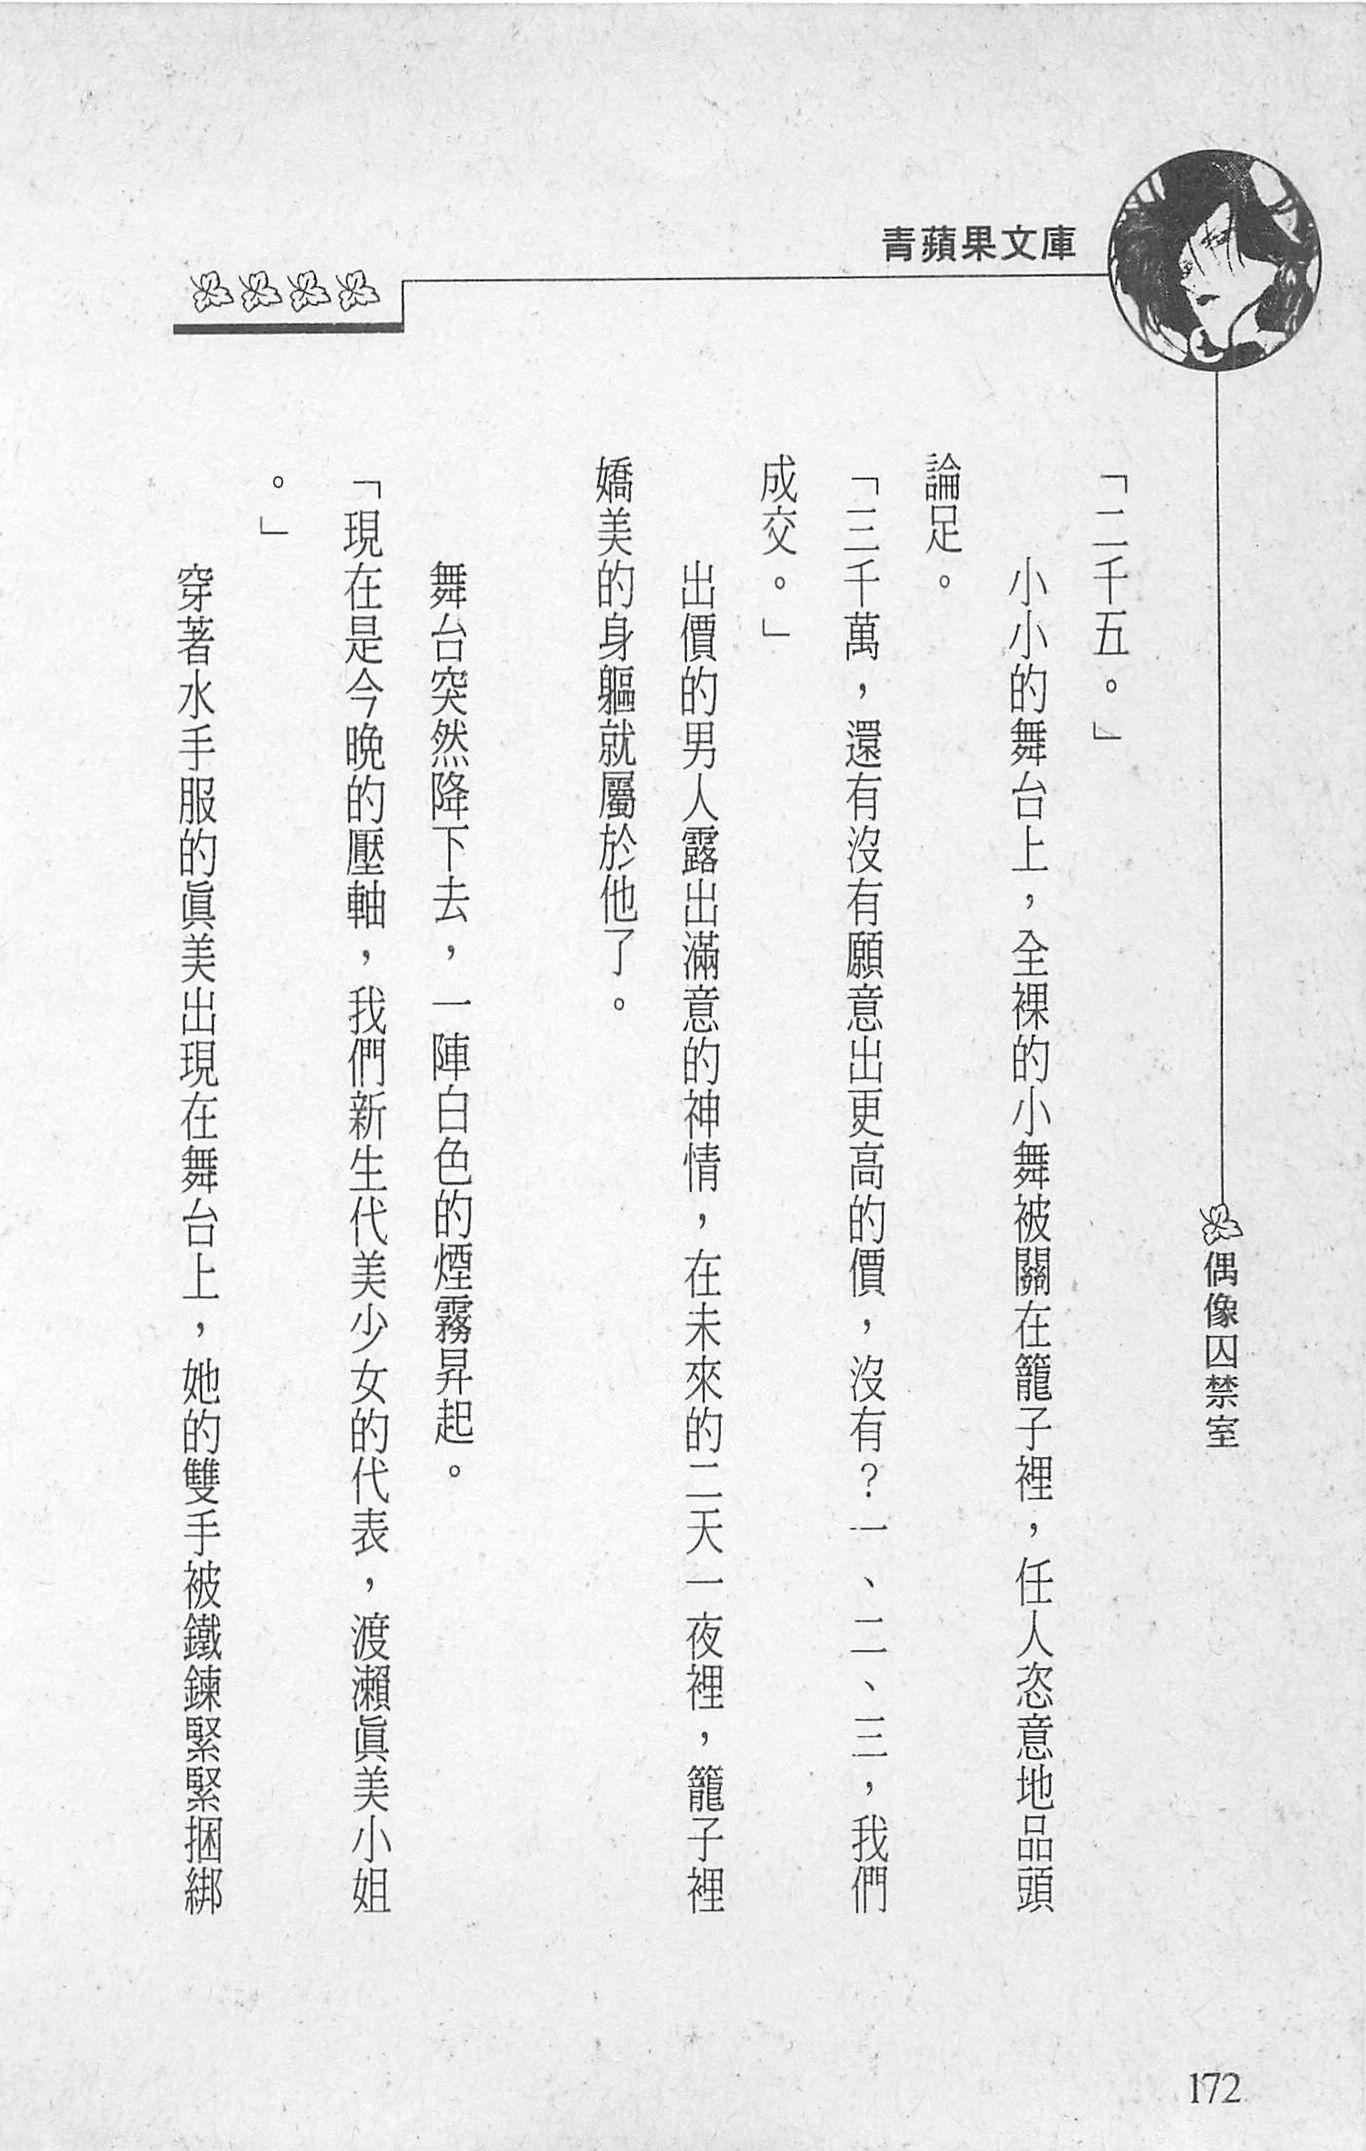 青蘋果文庫
偶像囚禁室
「二千五。」
小小的舞台上，全裸的小舞被關在籠子裡，任人恣意地品頭
論足。
「三千萬，還有沒有願意出更高的價，沒有？一、二、三，我們
成交。」
出價的男人露出滿意的神情，在未來的二天一夜裡，籠子裡
嬌美的身軀就屬於他了。
舞台突然降下去，一陣白色的煙霧昇起。
「現在是今晚的壓軸，我們新生代美少女的代表，渡瀨眞美小姐
。」
穿著水手服的眞美出現在舞台上，她的雙手被鐵鍊緊緊捆綁
172